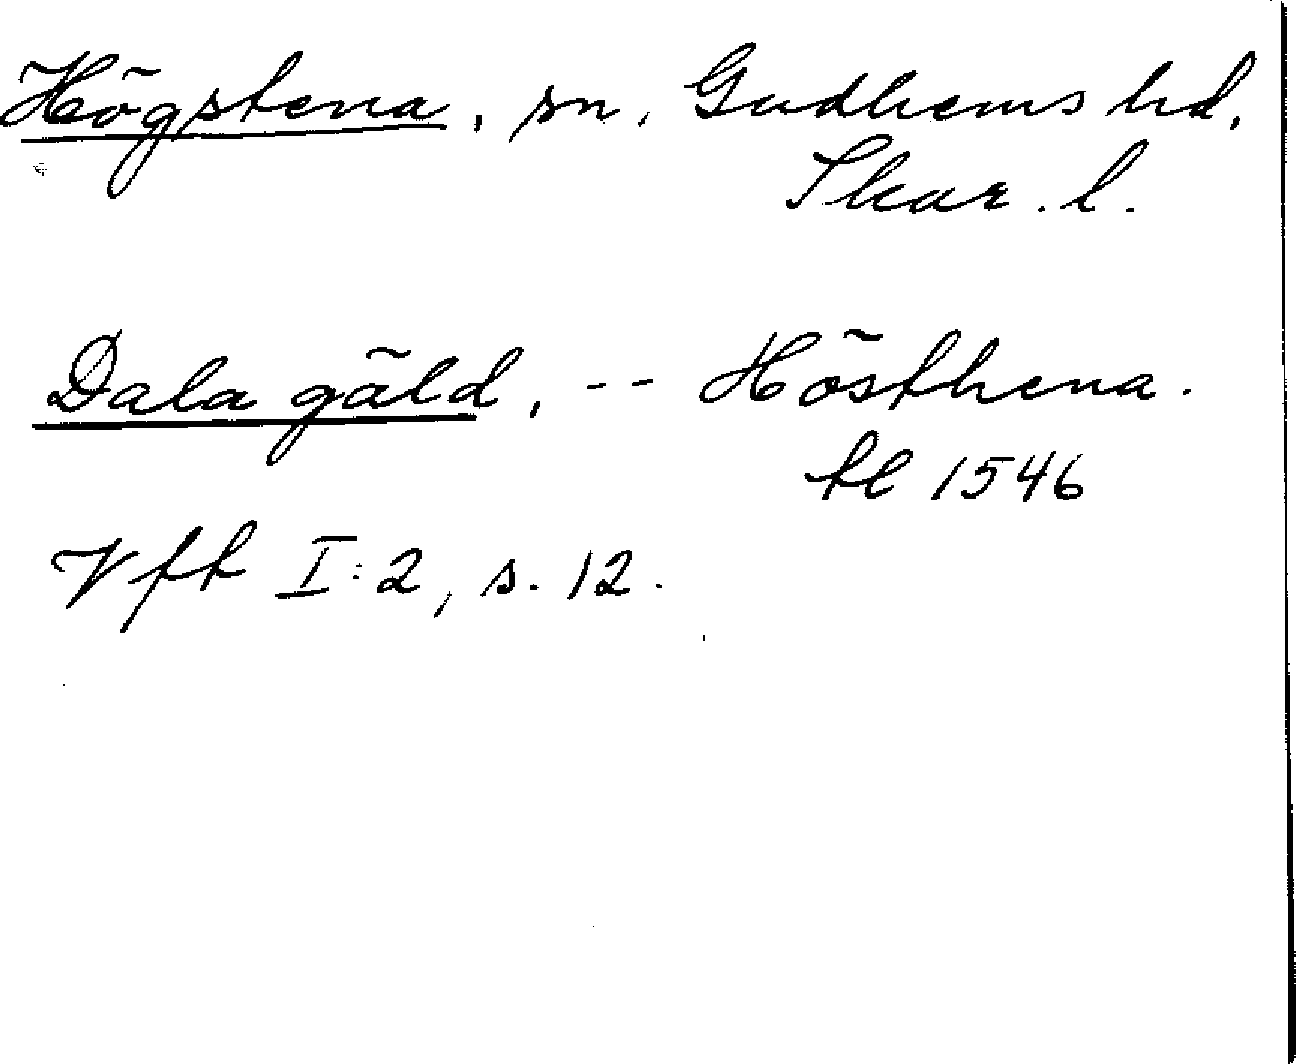 Högstena, sn, Gudhems hd,
Skar. l.
Dala gäld, -- Hösthena.
tl 1546
Vft I:2, s. 12.